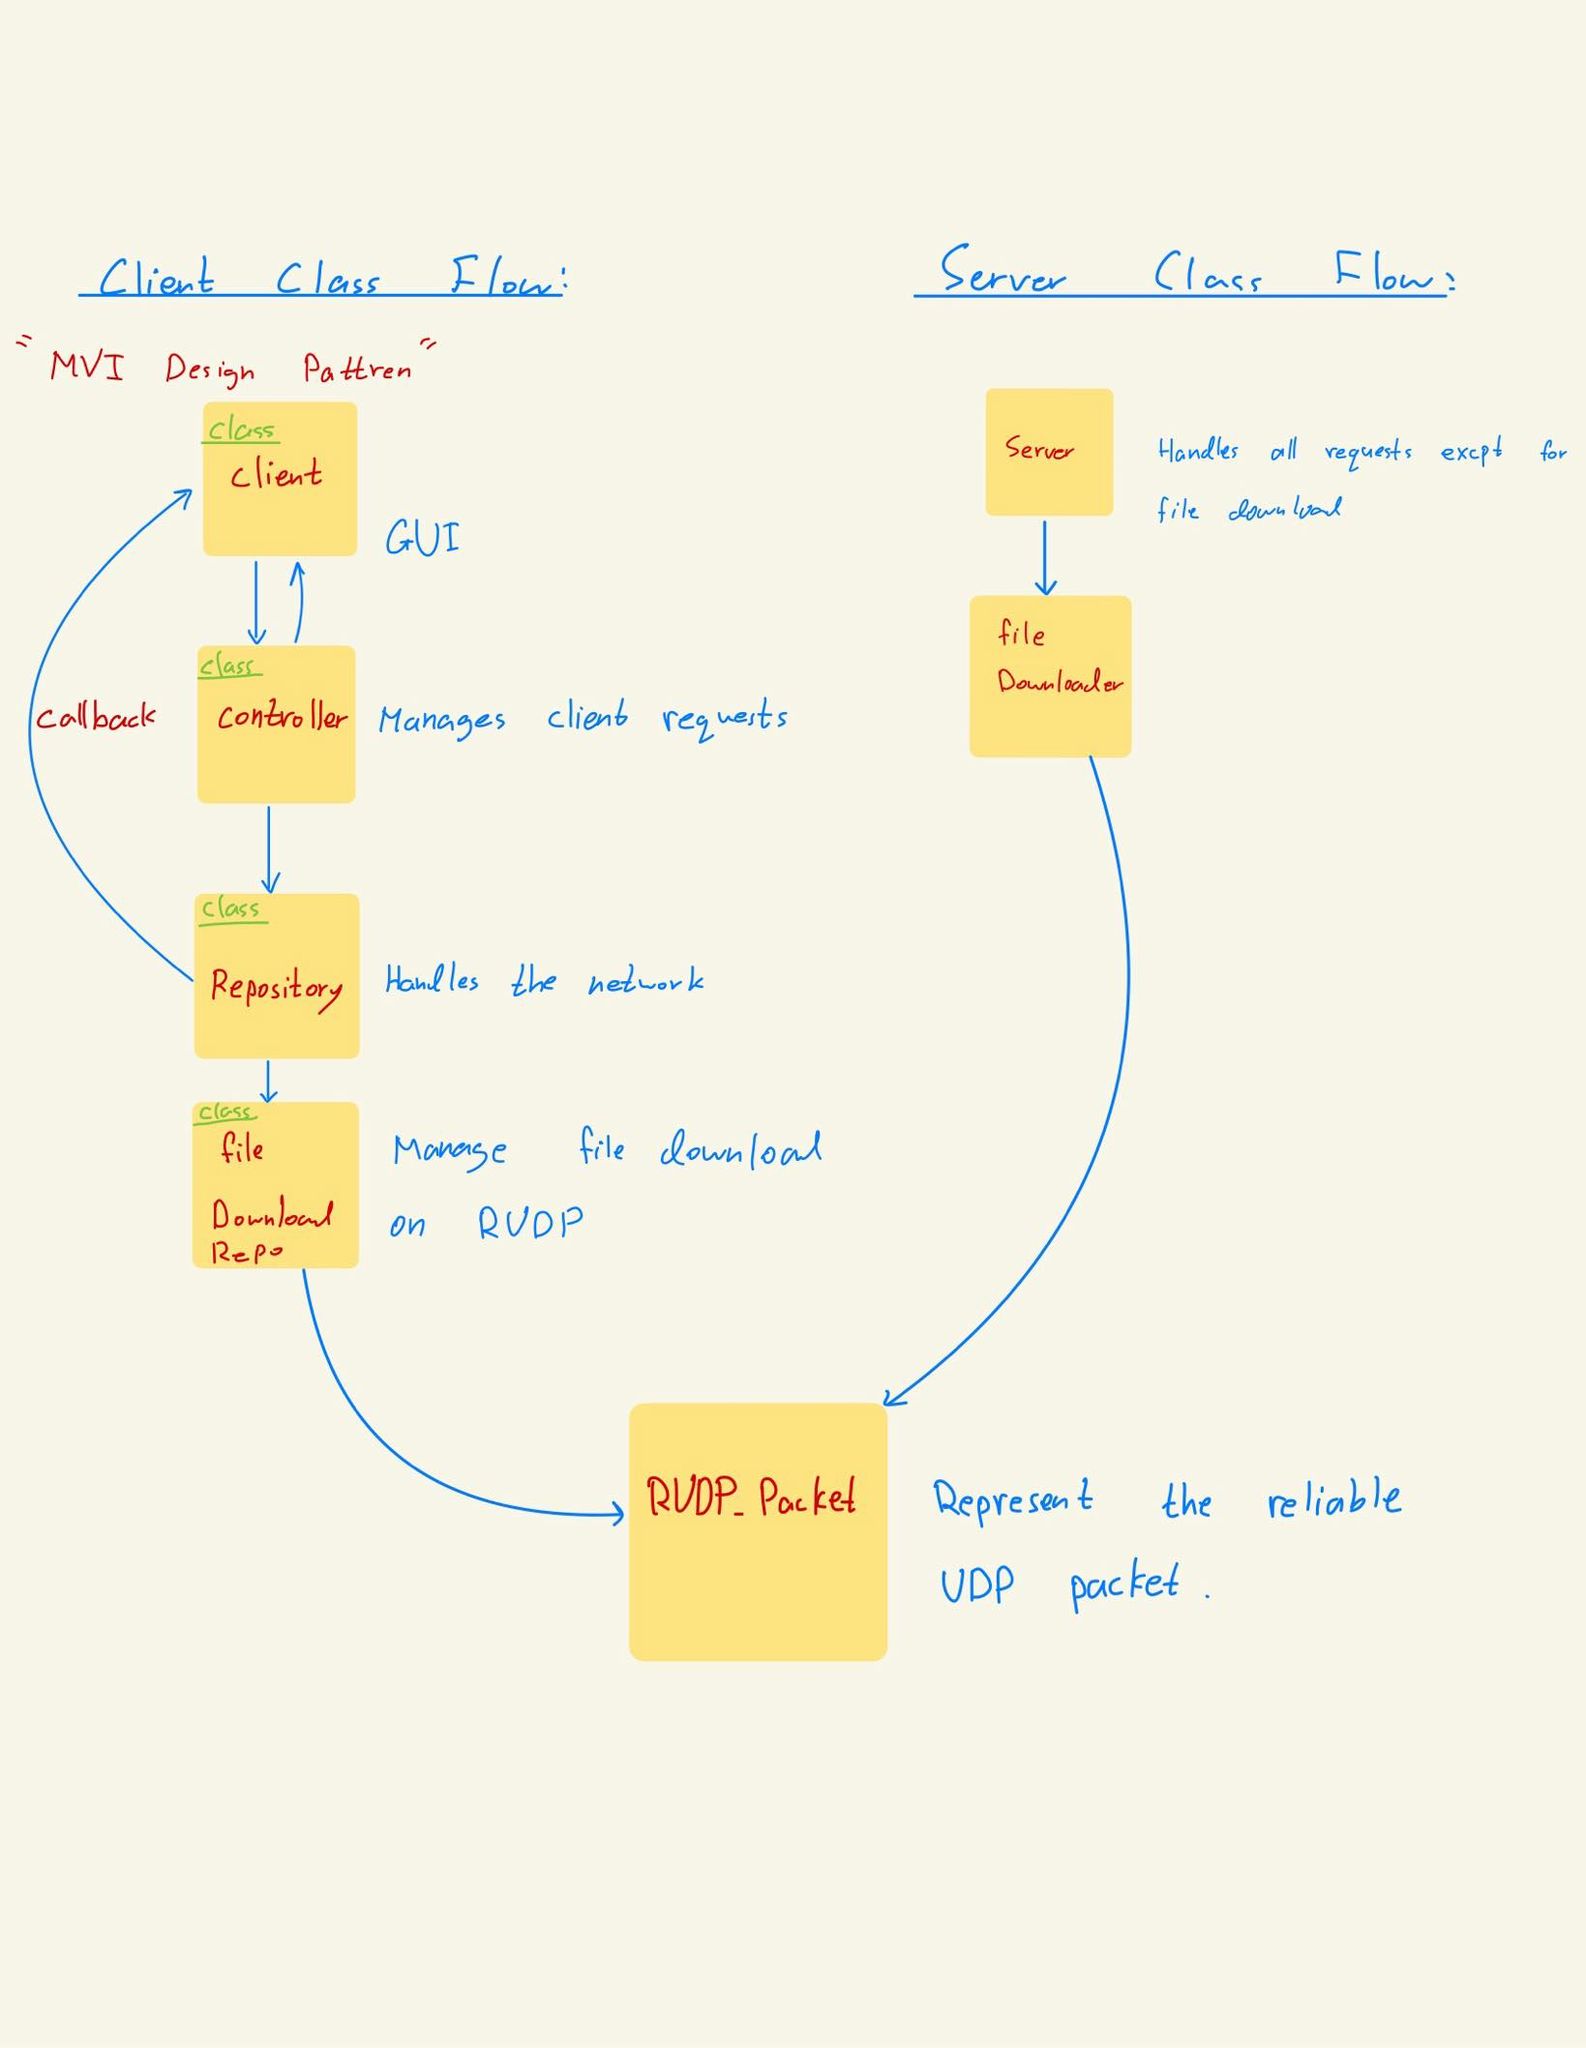 Client Class Flow:
"MVI Design Pattren"
class
Client
GUI
class
Controller
Manages client requests
Callback
class
Repository
Handles the network
class
file
Download
Repo
Manage file download
on RUDP
Server Class Flow:
Server
Handles all requests excpt for
file download
file
Downloader
RUDP_Packet
Represent the reliable
UDP packet.